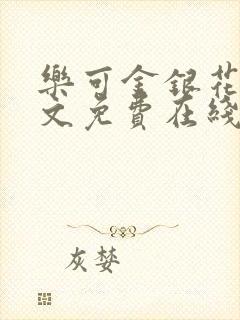 樂可金銀花
文免費在綫
灰婪